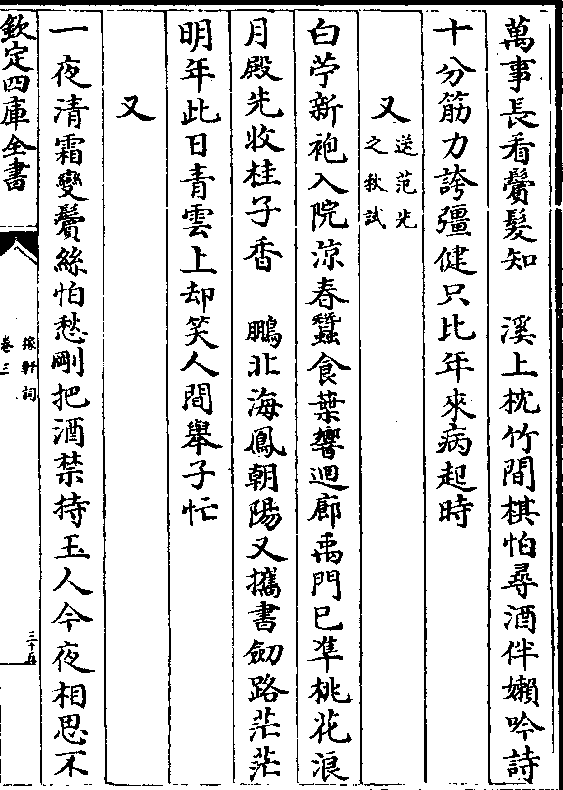 萬事長看鬢髮知　溪上枕竹間棋怕尋酒伴嬾吟詩
十分筋力誇彊健只比年來病起時
又送范先之秋試
白苧新袍入院涼春蠶食葉響迴廊禹門已準桃花浪
月殿先收桂子香　鵬北海鳳朝陽又攜書劒路茫茫
明年此日青雲上却笑人間舉子忙
又
一夜清霜變鬢絲怕愁剛把酒禁持玉人今夜相思不
欽定四庫全書
稼軒詞
卷三
三十五